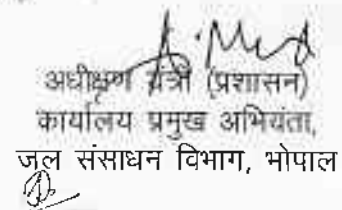 अधीक्षण यंत्री (प्रशासन)
कार्यालय प्रमुख अभियंता,
जल संसाधन विभाग, भोपाल